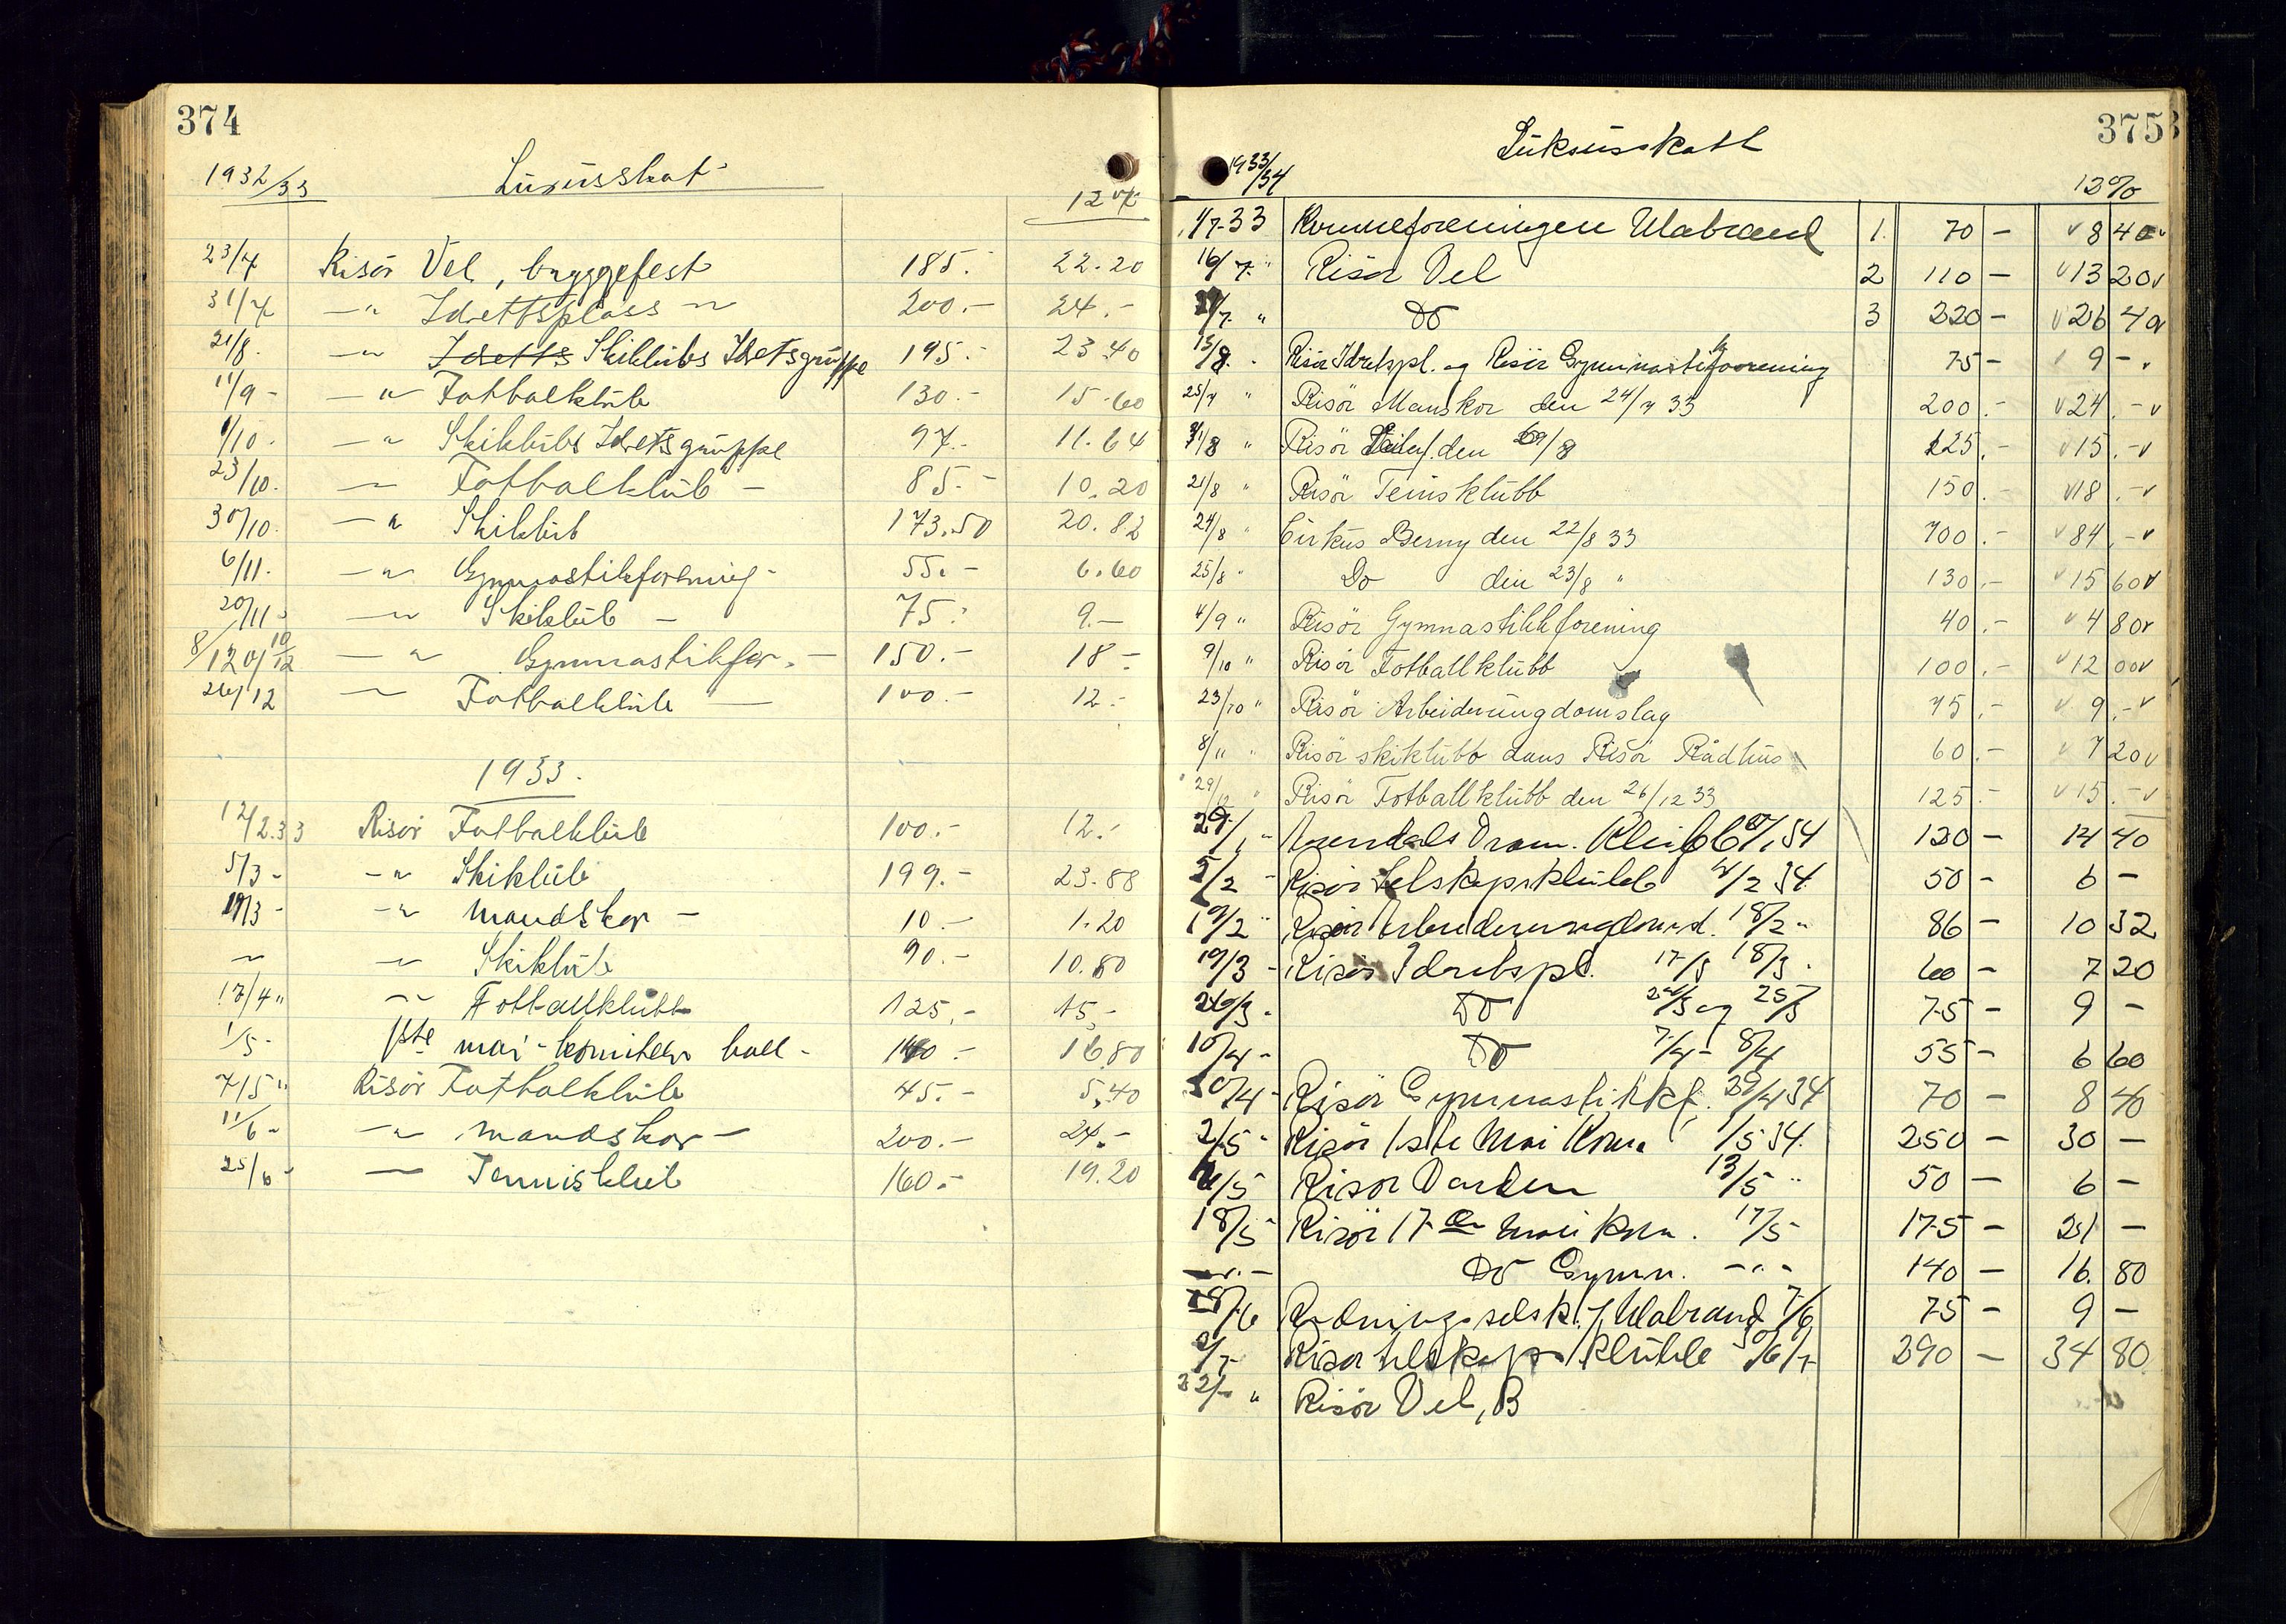 374
1932/33 Luxusskat 12 %
23/7 Risör Vel, bryggefest 185.- 22.20
31/7 —"— Idrettsplass —"— 200.- 24.-
21/8. —"— Idretts Skiklubs Idretsgruppe 195.- 23.40
11/9 - —"— Fotbalklub 130.- 15.60
9/10. —"— Skiklubs Idretsgruppe 97.- 11.64
23/10. — Fotbalklub — 85.- 10.20
30/10. —"— Skiklub 173.50 20.82
6/11. —"— Gymnastikforening - 55.- 6.60
20/11 - —"— Skiklub — 75.- 9.-
8/12 og 10/12 —"— Gymnastikfor. — 150.- 18 -
26/12 — Fotbalklub — 100.- 12.-
1933.
12/2.33 Risör Fotbalklub 100.- 12.-
5/3 - —"— Skiklub 199.- 23.88
19/3 - —"— Mandskor — 10.- 1.20
— —"— Skiklub 90.- 10.80
17/4 " —"— Fotballklubb 125.- 15.-
1/5 - 1ste mai-komiteen ball - 140.- 16.80
7/5 " Risör Fotbalklub 45.- 5.40
11/6 - —"— Mandskor — 200.- 24.-
25/6 - — Tennisklub 160.- 19.20
375
1933/34 Luksusskatt 12%
1/7-33 Kvinneforeningen Ulabrand 1. 70 - 8 40
16/7 " Risör Vel 2 110 - 13 20
29/7. " Do 3 220 - 26 40
13/8. Risör Idretspl. og Risör Gymnastikforening 75 - 9 -
25/7 " Risör Manskor den 24/7 33 200.- 24.-
31/8 " Risör den /8 125.- 15.-
21/8 " Risör Tennisklubb 150.- 18.-
24/8 " Cirkus Berny den 22/8 33 700.- 84.-
25/8 " Do den 23/8 " 130.- 15 60
4/9 " Risör Gymnastikkforening 40.- 4 80
9/10 " Risör Fotballklubb 100.- 12 00
23/10 " Risör Arbeiderungdomslag 75.- 9.-
8/11 " Risör skiklubb dans Risör Rådhus 60.- 7 20
29/12 " Risör Fotballklubb den 26/12 33 125.- 15.-
29/1 - Arendals Dram. 34 120 - 14 40
5/2 - Risör Selskapsklubb 4/2 34 50 - 6 -
19/2 " Risör Arbeiderungdoms. 18/2 " 86 - 10 32
19/3 - Risör Idretspl. 17/3 18/3. 60 - 7 20
26/3. Do 24/3 og 25/3 75 - 9 -
10/4 - Do 7/4 - 8/4 55 - 6 60
30/4 - Risör Gymnastikkf. 29/4 34 70 - 8 40
2/5 - Risör 1ste Mai Kom. 1/5 34. 250 - 30 -
/5 Risör Varden 13/5 " 50 - 6 -
18/5 - Risör 17de mai kom. 17/5 - 175 - 21 -
—"— Do Gymn. —"— 140 - 16. 80
8/6 Redningsselsk. Ulabrand 7/6 75 - 9 -
2/7 - Risör Selskapsklubb 30/6 1/7 290 - 34 80
22/ " Risör Vel, B